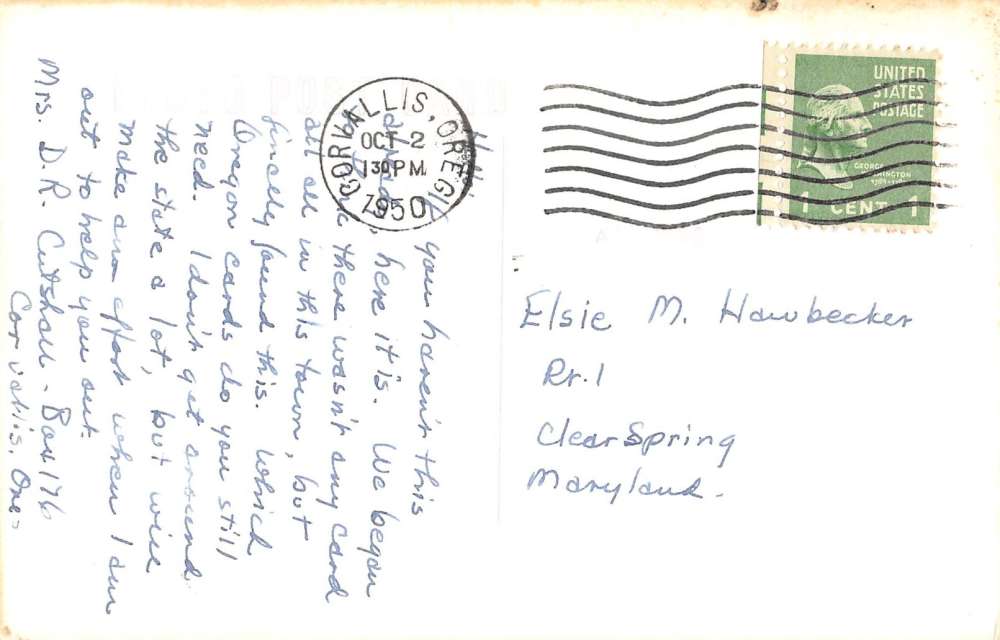 you haven't this
here it is. We began
think there wasn't any card
at all in this town, but
finally found this. Which
Oregon cards do you still
need. I don't get around
the state a lot, but will
make an effort when I am
out to help you out.
Mrs. D.R. Cutshall - Box 176
Corvallis, Ore.
CORVALLIS, OREG.
OCT-2
130PM
1950
UNITED
STATES
POSTAGE
GEORGE
WASHINGTON
1 CENT 1
Elsie M. Hawbecker
Rr. 1
ClearSpring
Maryland.